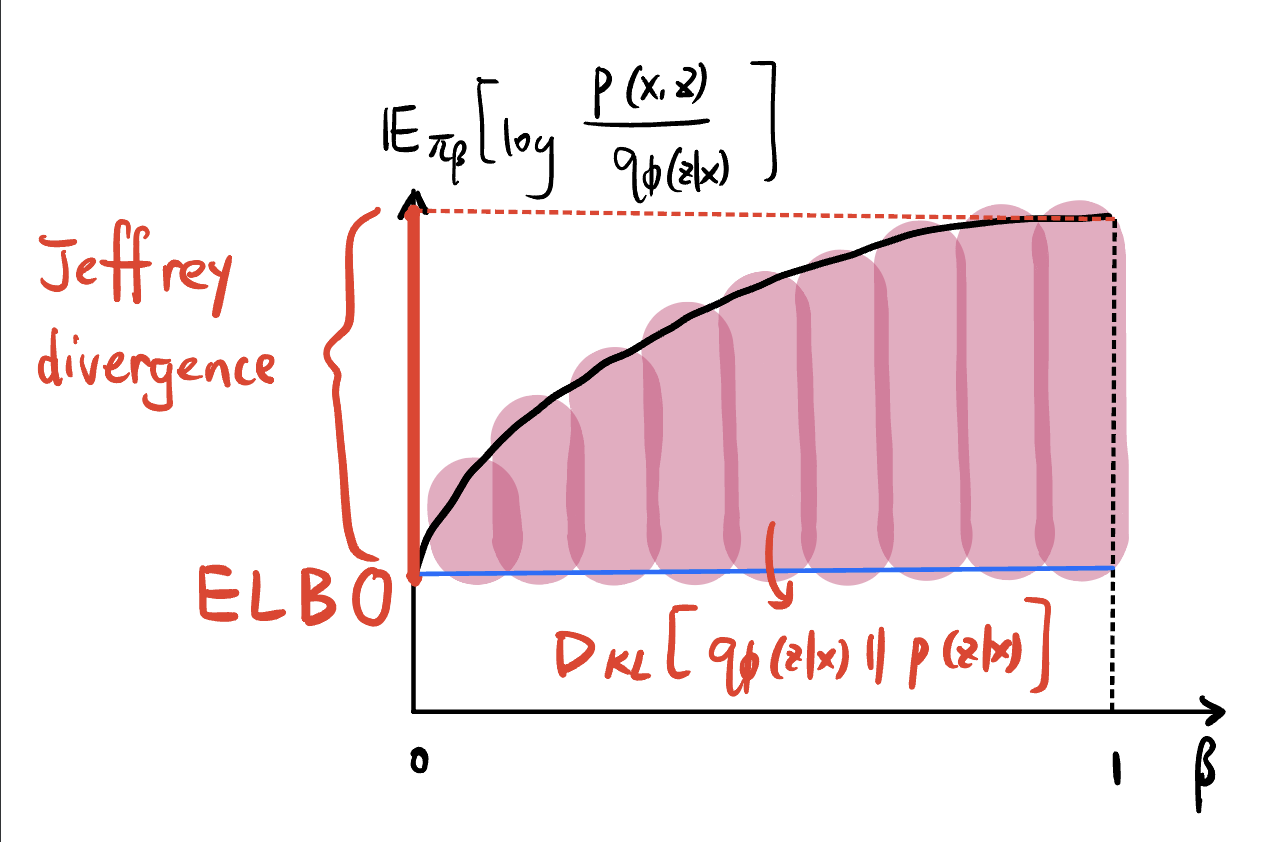 𝔼_πβ [log p(x, z) / qϕ(z|x)]
Jeffrey
divergence
ELBO
D_KL [qϕ(z|x) || p(z|x)]
0
1
β